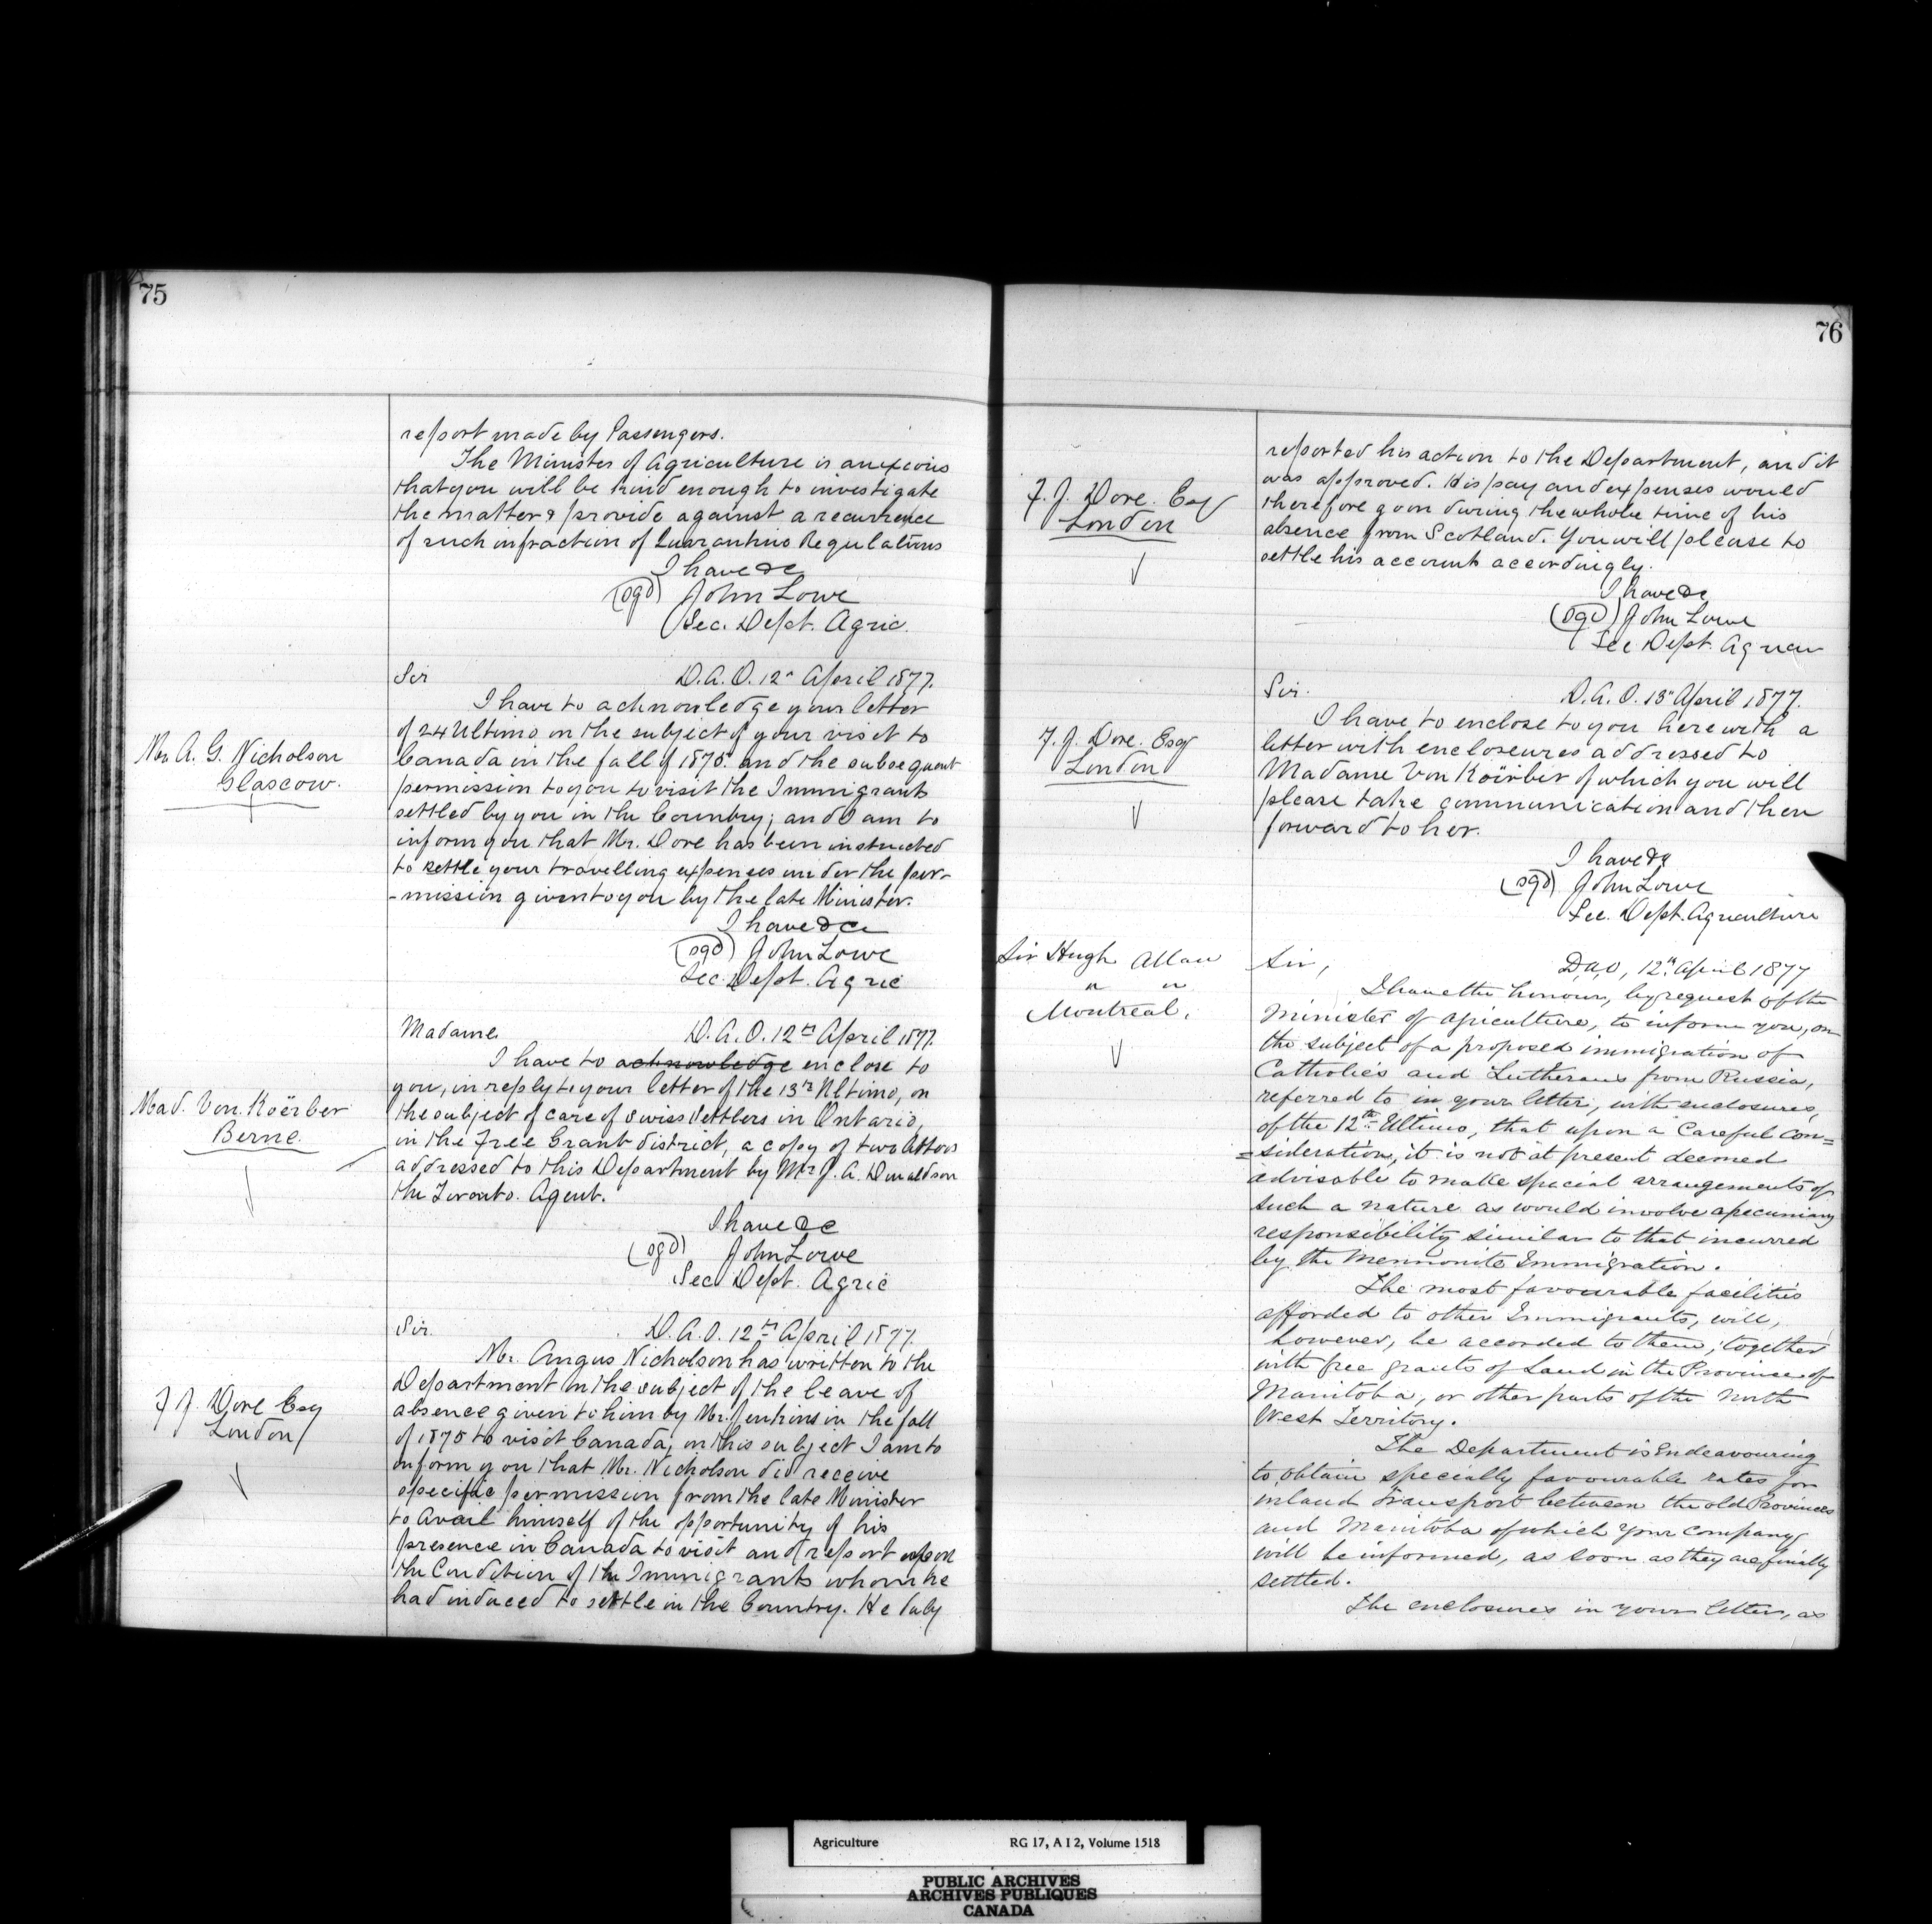 75
report made by Passengers.
The Minister of Agriculture is anxious
that you will be kind enough to investigate
the matter & provide against a recurrence
of such infraction of Quarantine Regulations
I have &c
(sgd) John Lowe
Sec. Dept. Agric.
Mr A. G. Nicholson
Glascow.
Sir D.A.O. 12" April 1877.
I have to acknowledge your letter
of 24 Ultimo on the subject of your visit to
Canada in the fall of 1875 and the subsequent
permission to you to visit the Immigrants
settled by you in the Country; and I am to
inform you that Mr. Dore has been instructed
to settle your travelling expenses under the per-
-mission given to you by the late Minister.
I have &c
(sgd) John Lowe
Sec. Dept. Agric
Mad. Von. Koërber
Berne.
Madame. D.A.O. 12th April 1877.
I have to acknowledge enclose to
you, in reply to your letter of the 13th Ultimo, on
the subject of care of Swiss Settlers in Ontario,
in the Free Grant district, a copy of two letters
addressed to this Department by Mr J. A. Donaldson
the Toronto. Agent.
I have &c
(sgd) John Lowe
Sec Dept. Agric
F J. Dore Esq
London
Sir. D.A.O. 12th April 1877.
Mr. Angus Nicholson has written to the
Department on the subject of the leave of
absence given to him by Mr. Jenkins in the fall
of 1875 to visit Canada; on this subject I am to
inform you that Mr. Nicholson did receive
specific permission from the late Minister
to avail himself of the opportunity of his
presence in Canada to visit and report upon
the Condition of the Immigrants whom he
had induced to settle in the Country. He duly
76
F. J. Dore. Esq
London
reported his action to the Department, and it
was approved. His pay and expenses would
therefore go on during the whole time of his
absence from Scotland. You will please to
settle his account accordingly.
I have &c
(sgd) John Lowe
Sec Dept. Agricu
F. J. Dore. Esq
London
Sir. D.A.O. 13" April 1877.
I have to enclose to you herewith a
letter with encloseures addressed to
Madame Von Koërber of which you will
please take communication and then
forward to her.
I have &c
(sgd) John Lowe
Sec. Dept. Agriculture
Sir Hugh Allan
" "
Montreal.
Sir, D,A,O, 12th April 1877
I have the honour, by request of the
Minister of Agriculture, to inform you, on
the subject of a proposed immigration of
Catholics and Lutherans from Russia,
referred to in your letter, with enclosures,
of the 12th Ultimo, that upon a Careful con=
=sideration, it is not at present deemed
advisable to make special arrangements of
such a nature as would involve a pecuniary
responsibility similar to that incurred
by the Mennonite Immigration.
The most favourable facilities
afforded to other Immigrants, will,
however, be accorded to them; together
with free grants of Land in the Province of
Manitoba, or other parts of the North
West Territory.
The Department is Endeavouring
to obtain specially favourable rates for
inland transport between the old Provinces
and Manitoba of which your company
will be informed, as soon as they are finally
settled.
The enclosures in your letter, as
Agriculture RG 17, A I 2, Volume 1518
PUBLIC ARCHIVES
ARCHIVES PUBLIQUES
CANADA